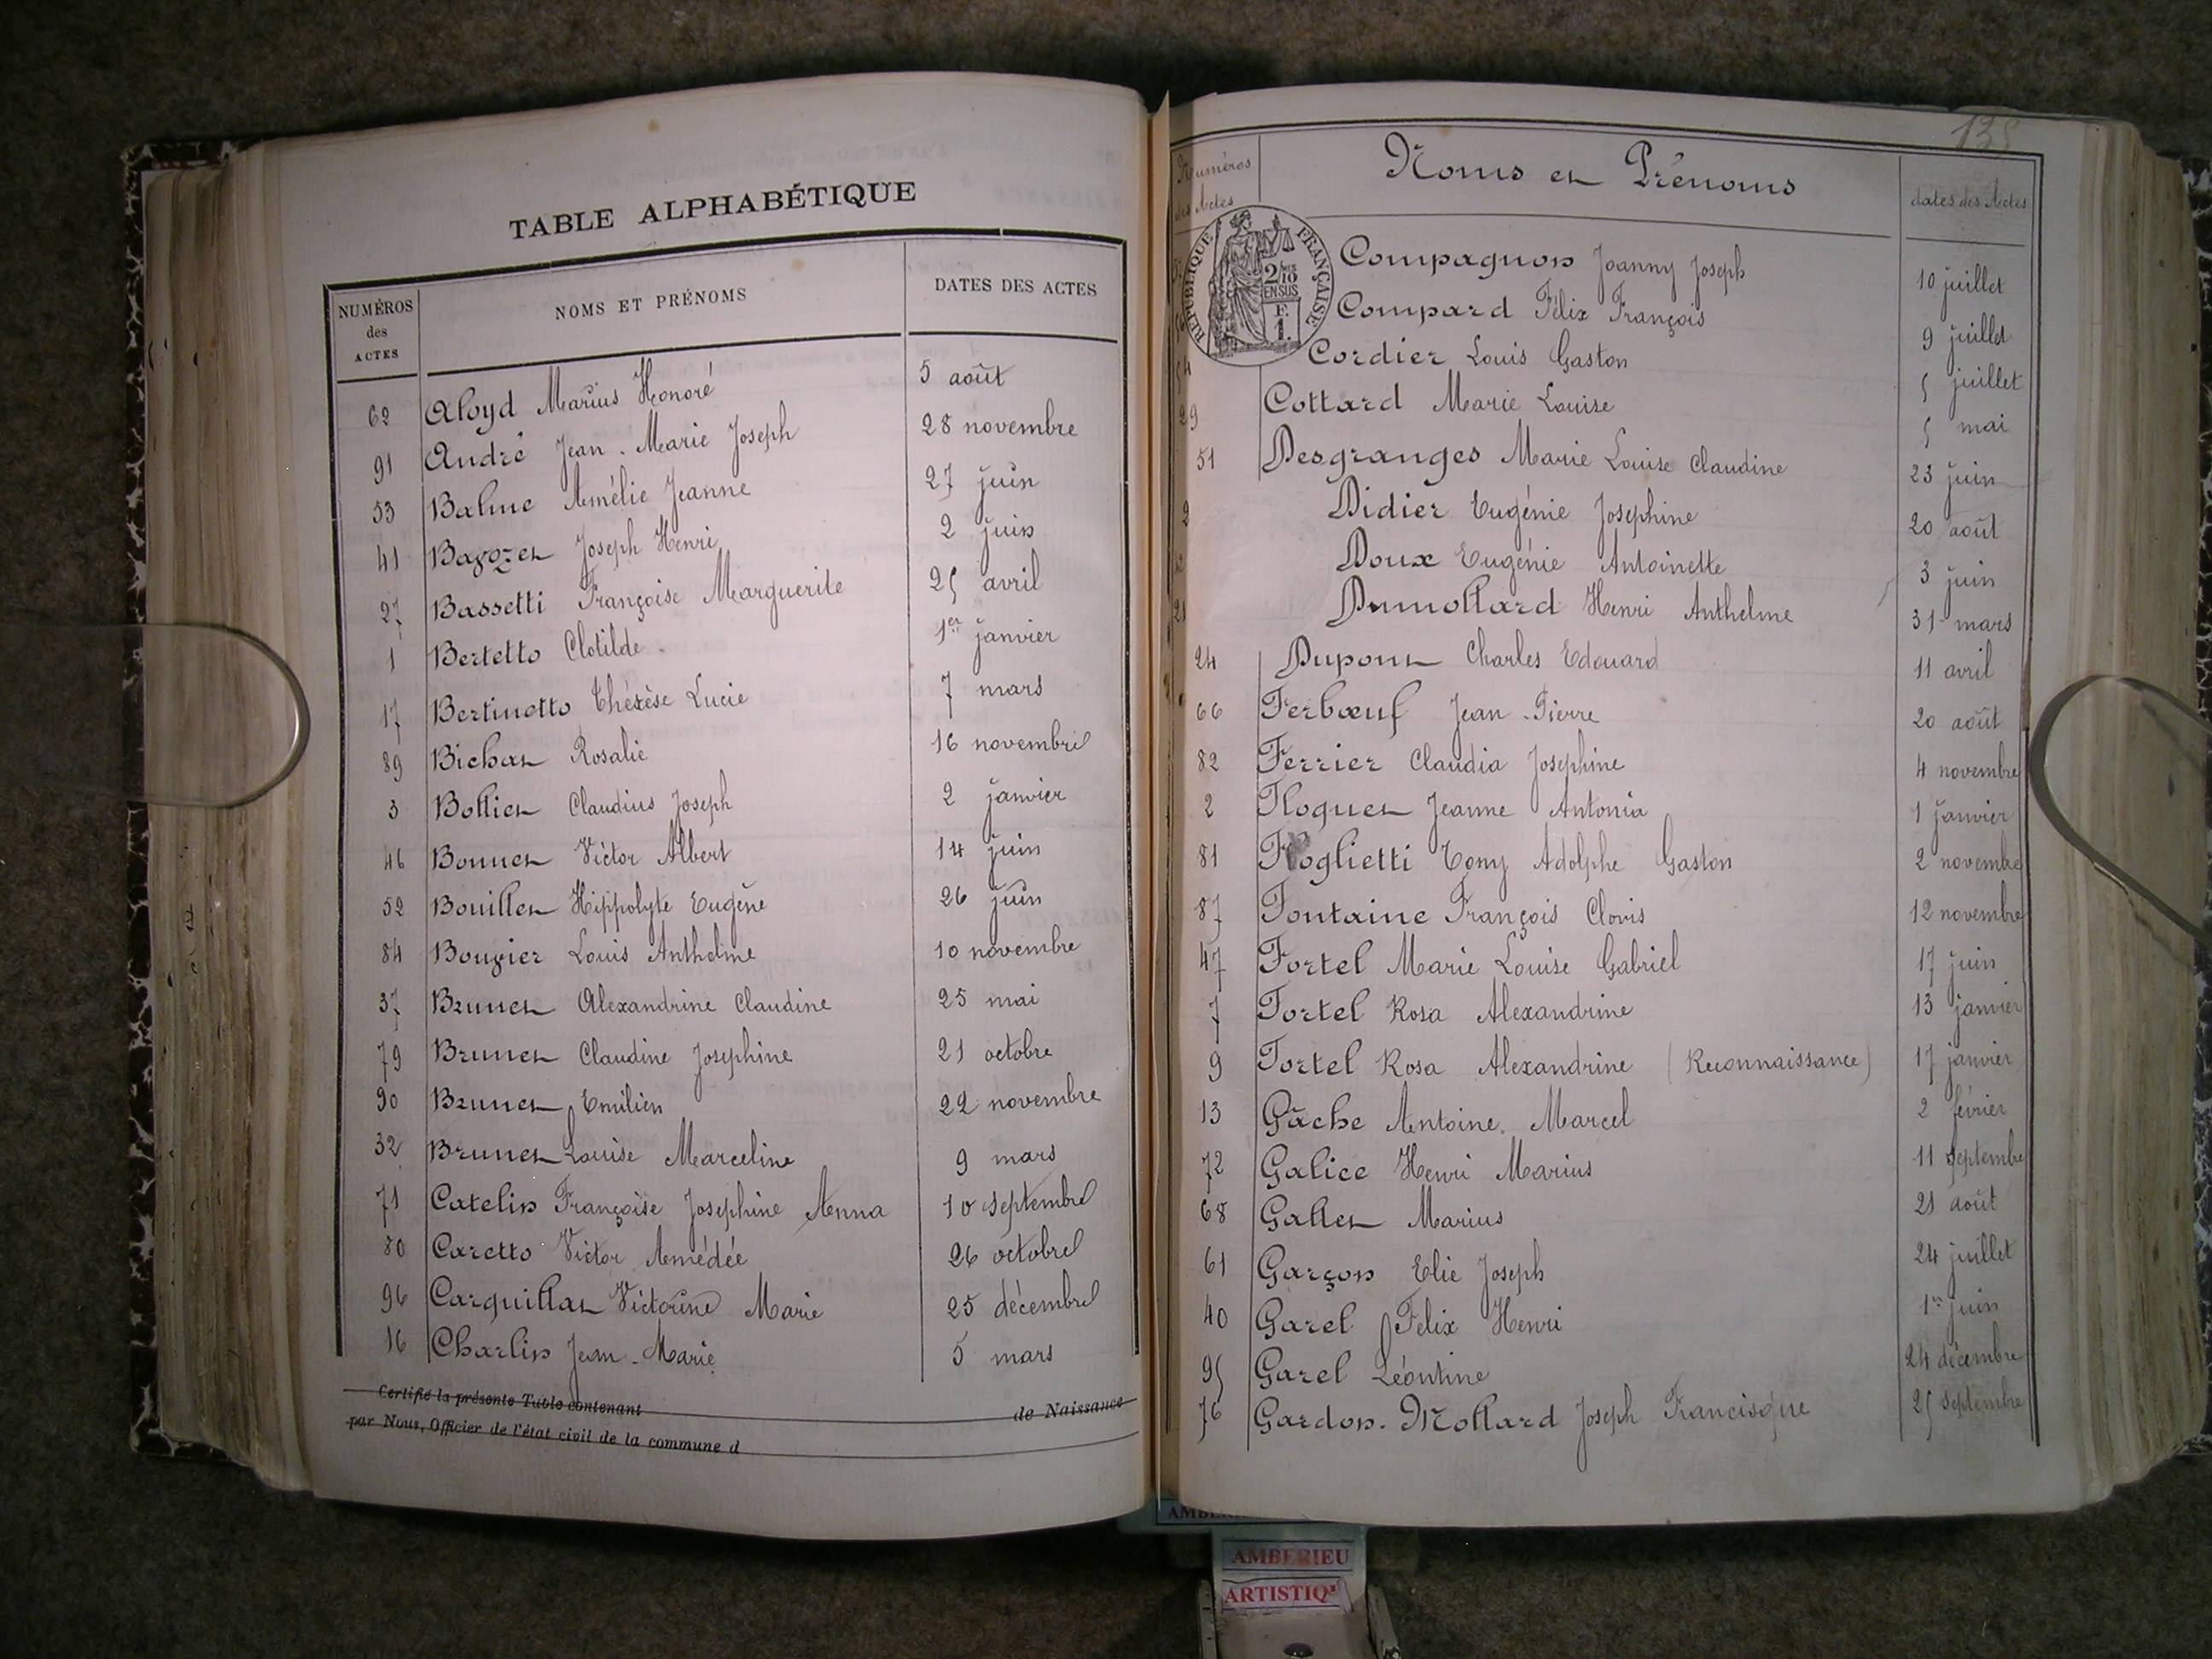 TABLE ALPHABÉTIQUE
NUMÉROS des ACTES
NOMS ET PRÉNOMS
DATES DES ACTES
62 Aloyd Marius Honoré 5 août
91 André Jean-Marie Joseph 28 novembre
53 Balme Amélie Jeanne 27 juin
41 Bayozet Joseph Henri 2 juin
27 Bassetti Françoise Marguerite 25 avril
1 Bertetto Clotilde 1er janvier
17 Bertinotto Thérèse Lucie 7 mars
89 Bichat Rosalie 16 novembre
3 Bolliet Claudius Joseph 2 janvier
46 Bonnet Victor Albert 14 juin
52 Bouillet Hippolyte Eugène 26 juin
84 Bouvier Louis Anthelme 10 novembre
37 Brunet Alexandrine Claudine 25 mai
79 Brunet Claudine Josephine 21 octobre
90 Brunet Emilien 22 novembre
32 Brunet Louise Marceline 9 mars
71 Catelin Françoise Josephine Anna 10 septembre
80 Caretto Victor Amédée 26 octobre
96 Carquillat Victorine Marie 25 décembre
16 Charlin Jean-Marie 5 mars
Certifié la présente Table contenant de Naissance
par Nous, Officier de l'état civil de la commune d
138
Numéros des Actes
Noms et Prénoms
dates des Actes
RÉPUBLIQUE FRANÇAISE
2/10 EN SUS
F. 1.
Compagnon Joanny Joseph 10 juillet
Compard Félix François 9 juillet
54 Cordier Louis Gaston 5 juillet
29 Cottard Marie Louise 5 mai
51 Desgranges Marie Louise Claudine 23 juin
Didier Eugénie Josephine 20 août
Doux Eugénie Antoinette 3 juin
21 Dumollard Henri Anthelme 31 mars
24 Dupont Charles Edouard 11 avril
66 Ferbœuf Jean-Pierre 20 août
82 Ferrier Claudia Josephine 4 novembre
2 Floquet Jeanne Antonia 1 janvier
81 Foglietti Tony Adolphe Gaston 2 novembre
87 Fontaine François Clovis 12 novembre
47 Fortel Marie Louise Gabriel 17 juin
7 Fortel Rosa Alexandrine 13 janvier
9 Fortel Rosa Alexandrine (Reconnaissance) 17 janvier
13 Gâche Antoine Marcel 2 février
72 Galice Henri Marius 11 septembre
68 Gallet Marius 21 août
61 Garçon Elie Joseph 24 juillet
40 Garel Félix Henri 1er juin
95 Garel Léontine 24 décembre
76 Gardon-Mollard Joseph Francisque 25 septembre
AMBERIEU
ARTISTIQ